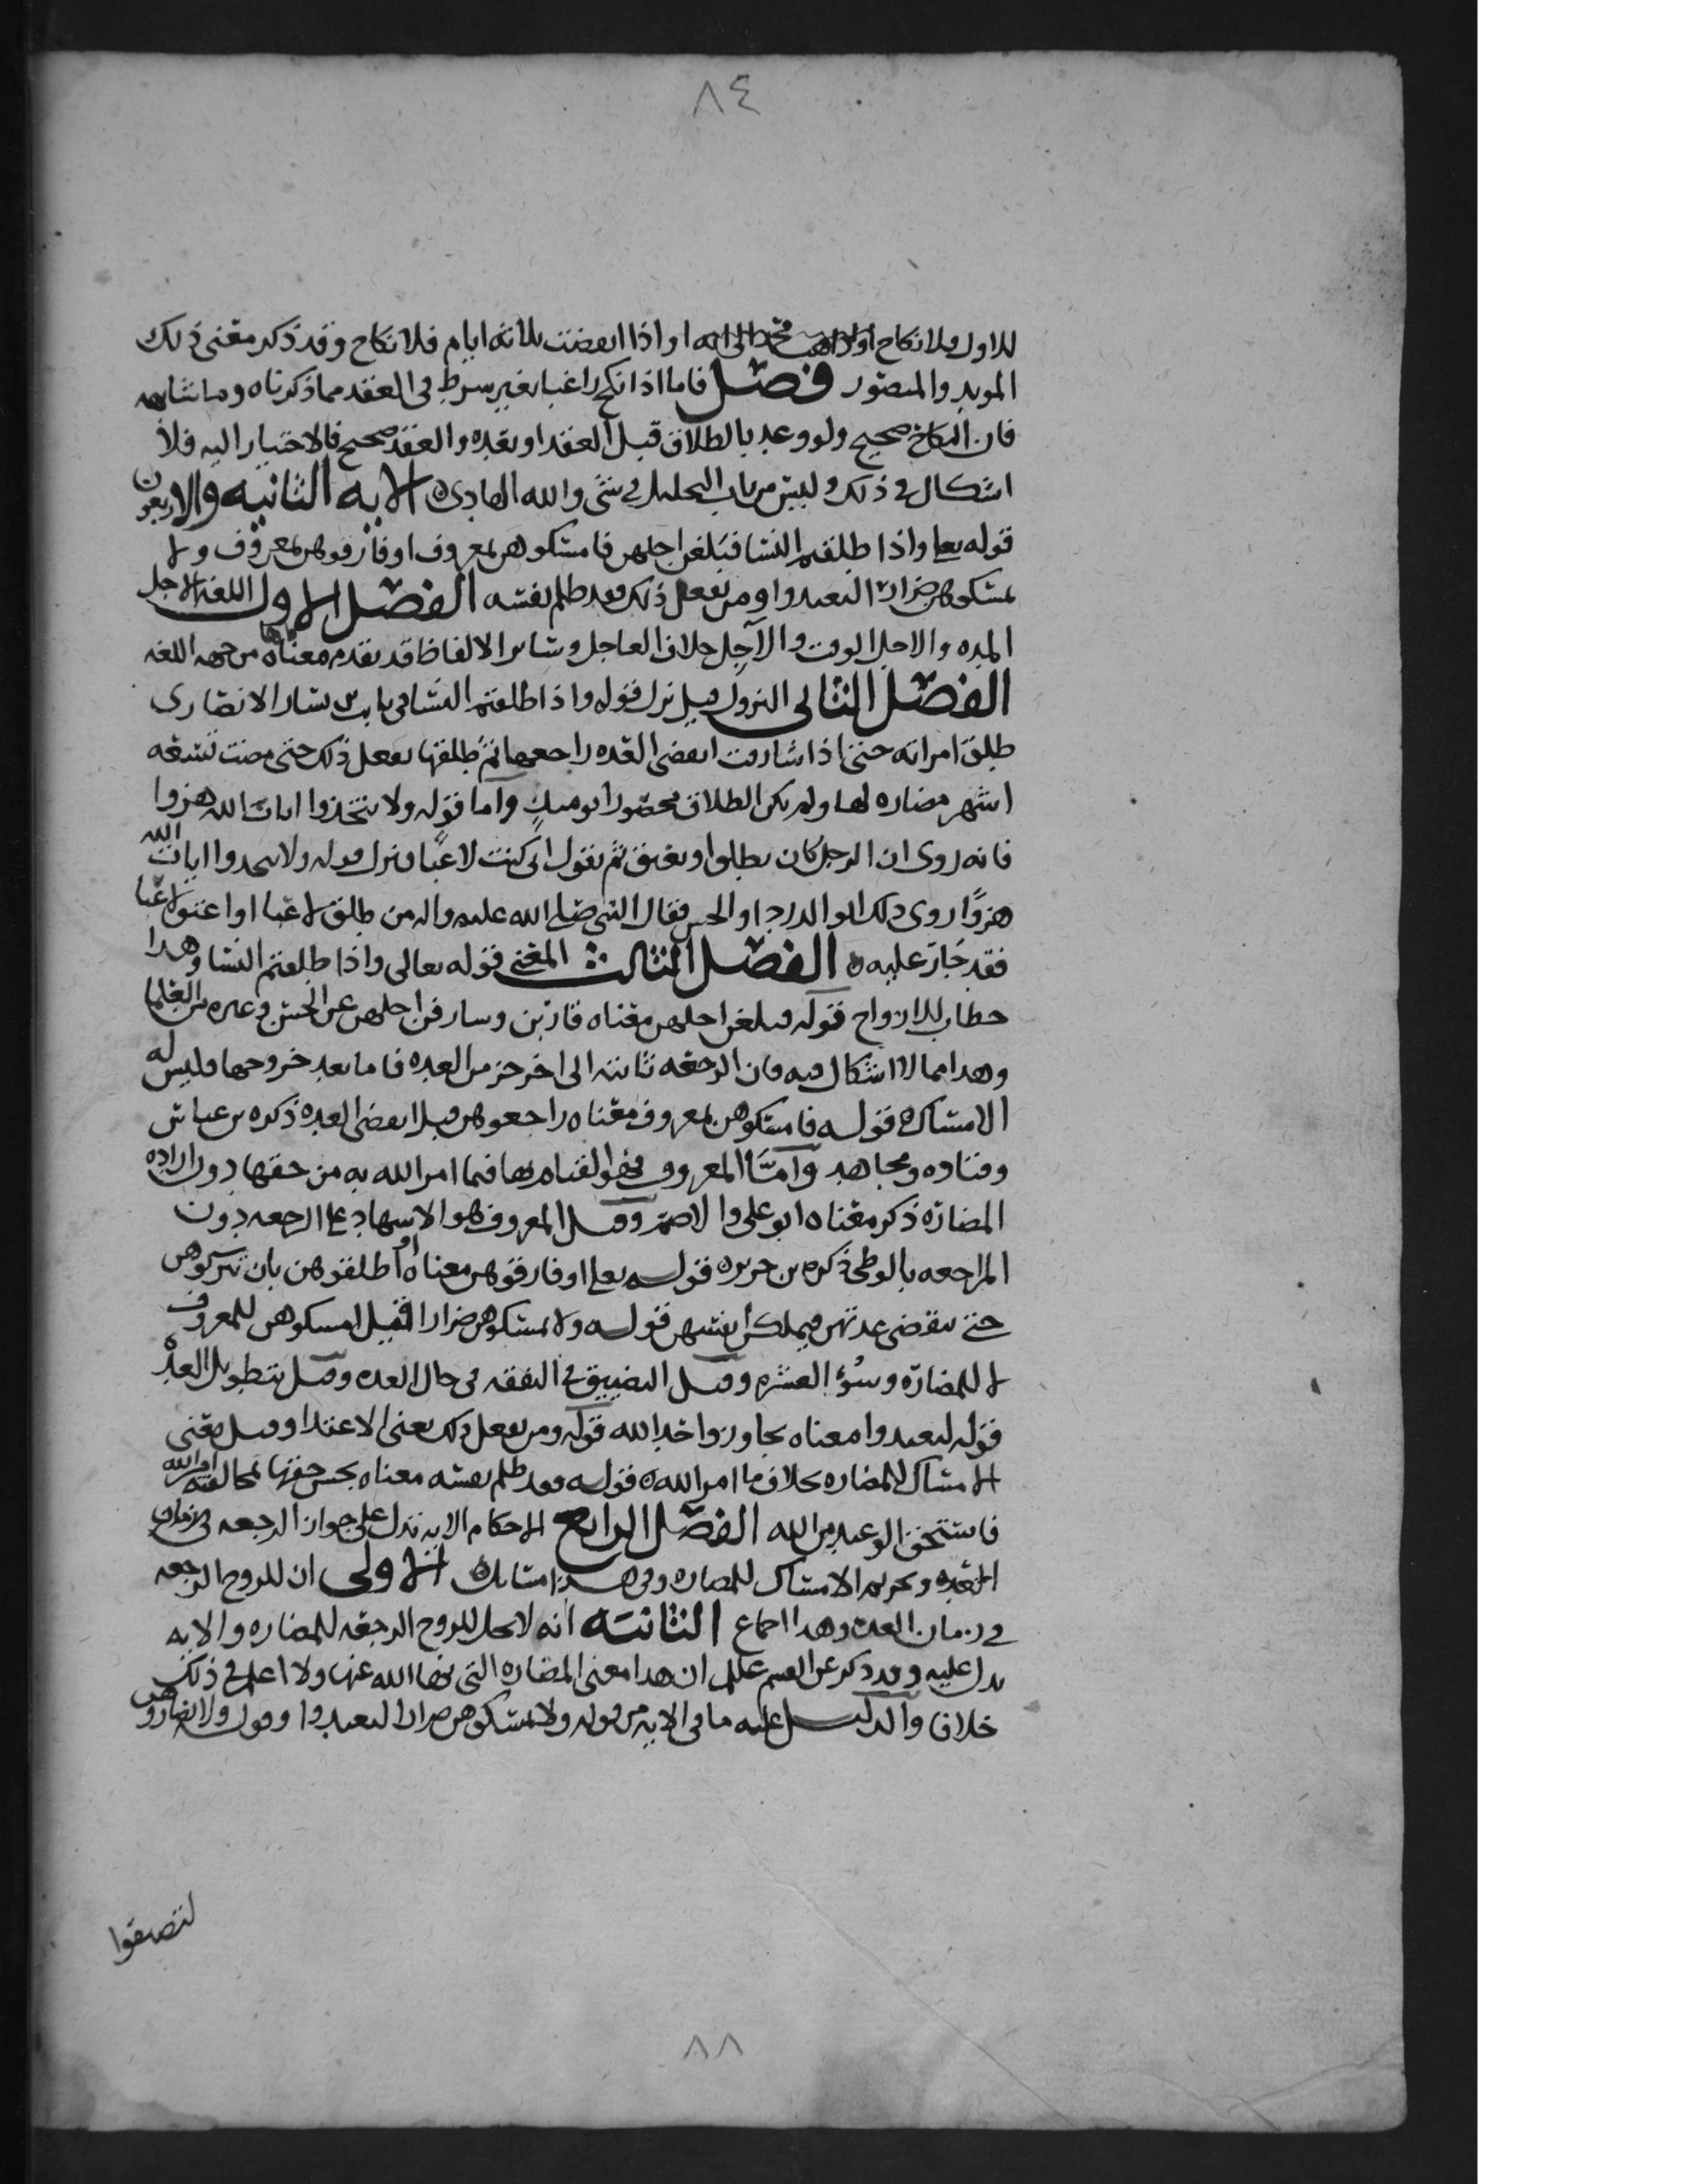 ٨٤
للاول ولا نكاح او اذا انقضت ثلاثة ايام فلا نكاح وقد ذكر معنى ذلك
المويد والمنصور فصل فاما اذا نكح راغبا بغير شرط في العقد مما ذكرناه وما شابهه
فان النكاح صحيح ولو وعد بالطلاق قبل العقد او بعده والعقد صحيح فالاختيار اليه فلا
اشكال في ذلك وليس من باب التحليل في شي والله الهادي الايه الثانيه والاربعون
قوله تعلى واذا طلقتم النسا فبلغن اجلهن فامسكوهن بمعروف او فارقوهن بمعروف ولا
تمسكوهن ضرارا لتعتدوا ومن يفعل ذلك فقد ظلم نفسه الفصل الاول اللغه الاجل
المده والاجل الوقت والآجل خلاف العاجل وسائر الالفاظ قد تقدم معناها من جهه اللغه
الفصل الثاني النزول قيل نزل قوله واذا طلقتم النسا في ثابت بن يسار الانصاري
طلق امراته حتى اذا شارفت انقضى العده راجعها ثم طلقها يفعل ذلك حتى مضت تسعه
اشهر مضاره لها ولم يكن الطلاق محصورا يوميذٍ واما قوله ولا تتخذوا ايات الله هزوا
فانه روى ان الرجل كان يطلق او يعتق ثم يقول اني كنت لاعبًا فنزل قوله ولا تتخذوا ايات الله
هزوًا روى ذلك ابو الدردا والحسن فقال النبي صلى الله عليه واله من طلق لاعبا او اعتق لاعبا
فقد جاز عليه الفصل الثالث المعنى قوله تعالى واذا طلقتم النسا وهذا
خطاب للازواج قوله فبلغن اجلهن معناه قاربن وشارفن اجلهن عن الحسن وغيره من العلما
وهذا مما لا اشكال فيه فان الرجعه ثابته الى اخر جز من العده فاما بعد خروجها فليس له
الامساك قوله فامسكوهن بمعروف معناه راجعوهن قبل انقضى العده ذكره بن عباس
وقتاده ومجاهد وامَّا المعروف فهو القيام بها فيما امر الله به من حقها دون اراده
المضاره ذكر معناه ابو علي والاصم وقيل المعروف هو الاشهاد على الرجعه دون
المراجعه بالوطي ذكره بن جرير قوله تعلى او فارقوهن معناه او طلقوهن بان تتركوهن
حتى تنقضي عدتهن فيملكن انفسهن قوله ولا تمسكوهن ضرارا فقيل امسكوهن للمعروف
لا للمضاره وسُؤ العشره وقيل التضييق في النفقه في حال العده وقيل بتطويل العده
قوله لتعتدوا معناه تجاوزوا حد الله قوله ومن يفعل ذلك يعني الاعتدا وقيل يعني
الامساك للمضاره بخلاف ما امر الله قوله فقد ظلم نفسه معناه بخس حقها لمخالفته امر الله
فاستحق الوعيد من الله الفصل الرابع الاحكام الايه تدل على جواز الرجعه في زمان
العده وتحريم الامساك للمضاره وفي هذا مسايل الاولى ان للزوج الرجعه
في زمان العده وهذا اجماع الثانيه انه لا يحل للزوج الرجعه للمضاره والايه
تدل عليه وقد ذكر عن القسم عللم ان هذا معنى المضاره التي نها الله عنها ولا اعلم في ذلك
خلافا والدليل عليه ما في الايه من قوله ولا تمسكوهن ضرارا لتعتدوا وقوله ولا تضاروهن
لتضيقوا
٨٨